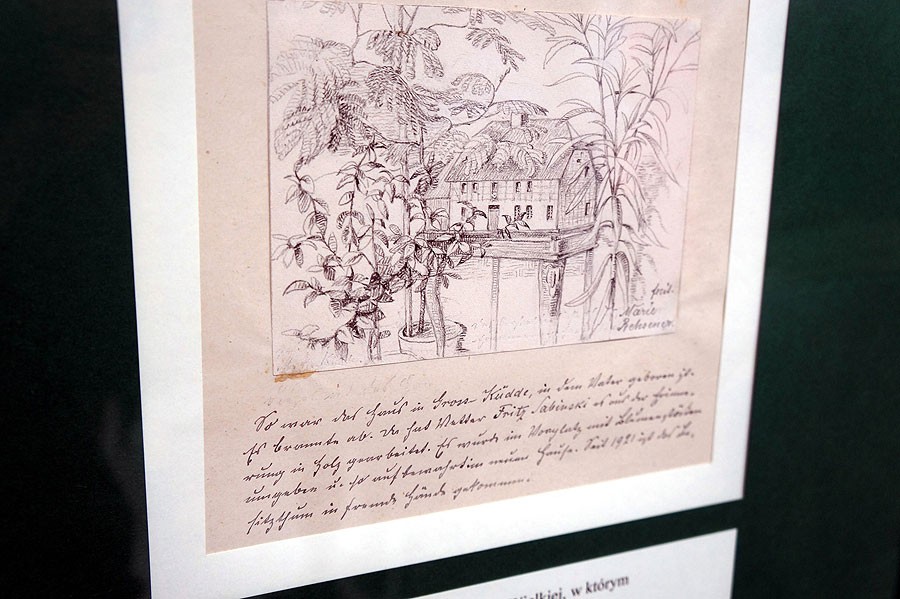 fecit.
Marie
Rehsener.
So war das Haus in Gross Küdde, in dem Vater geboren ist.
Es brannte ab. Da hat Vetter Fritz Sabinski es aus der Erinne-
rung in Holz gearbeitet. Es wurde im Vorplatz mit Blumenstöcken
umgeben u. so aufbewahrt im neuen Hause. Seit 1921 ist das Be-
sitzthum in fremde Hände gekommen.
Wielkiej, w którym